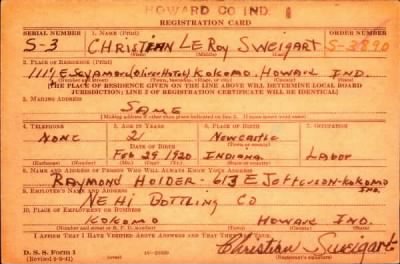 HOWARD CO IND.
REGISTRATION CARD
SERIAL NUMBER 1. NAME (Print) ORDER NUMBER
S-3 CHRISTIAN LE ROY SWEIGART S-3890
(First) (Middle) (Last)
2. PLACE OF RESIDENCE (Print)
1114 E SYCAMORE (Oliver Hotel) KOKOMO. HOWARD IND.
(Number and street) (Town, township, village, or city) (County) (State)
[THE PLACE OF RESIDENCE GIVEN ON THE LINE ABOVE WILL DETERMINE LOCAL BOARD
JURISDICTION; LINE 2 OF REGISTRATION CERTIFICATE WILL BE IDENTICAL]
3. MAILING ADDRESS
SAME
[Mailing address if other than place indicated on line 2. If same insert word same]
4. TELEPHONE 5. AGE IN YEARS 6. PLACE OF BIRTH 7. OCCUPATION
NONE 21 NEWCASTLE
DATE OF BIRTH (Town or county)
FEB 29 1920 INDIANA LABOR
(Exchange) (Number) (Mo.) (Day) (Yr.) (State or country)
8. NAME AND ADDRESS OF PERSON WHO WILL ALWAYS KNOW YOUR ADDRESS
RAYMOND HOLDER - 613 E JEFFERSON - KOKOMO IND.
9. EMPLOYER'S NAME AND ADDRESS
NEHI BOTTLING CO
10. PLACE OF EMPLOYMENT OR BUSINESS
KOKOMO HOWARD IND.
(Number and street or R. F. D. number) (Town) (County) (State)
I AFFIRM THAT I HAVE VERIFIED ABOVE ANSWERS AND THAT THEY ARE TRUE.
D. S. S. Form 1
(Revised 6-9-41) Christian Sweigart